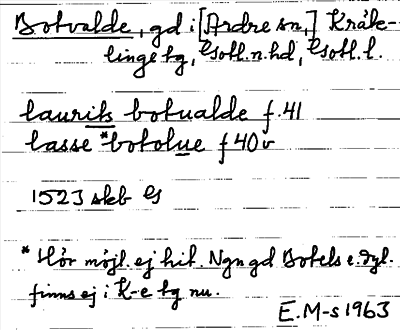 Botvalde, gd i [Ardre sn,] Kräk-
linge tg, Gotl.n.hd, Gotl.l.
laurits botualde f.41
lasse *botolue f 40v
1523 skb G
* Hör möjl. ej hit. Ngn gd Botels e.dyl.
finns ej i K-e tg nu.
E.M-s 1963